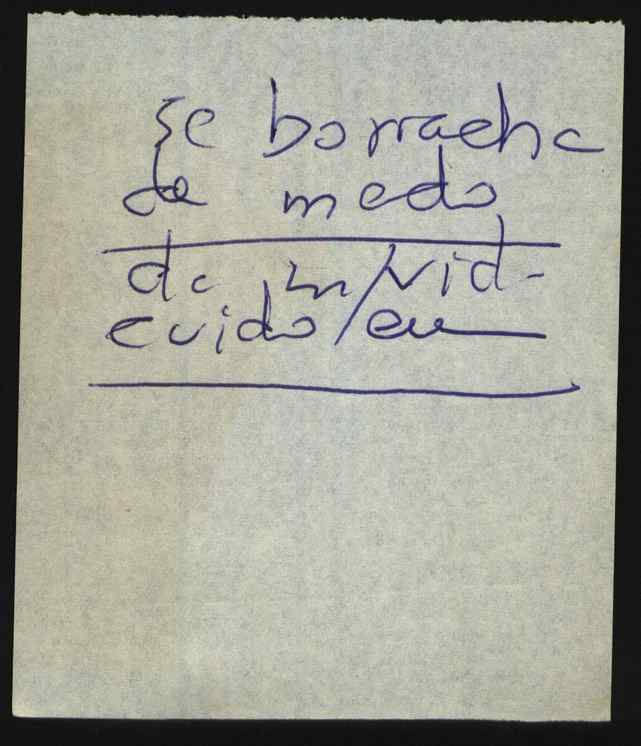 se borracha
de medo
da m/vid-
cuido/eu